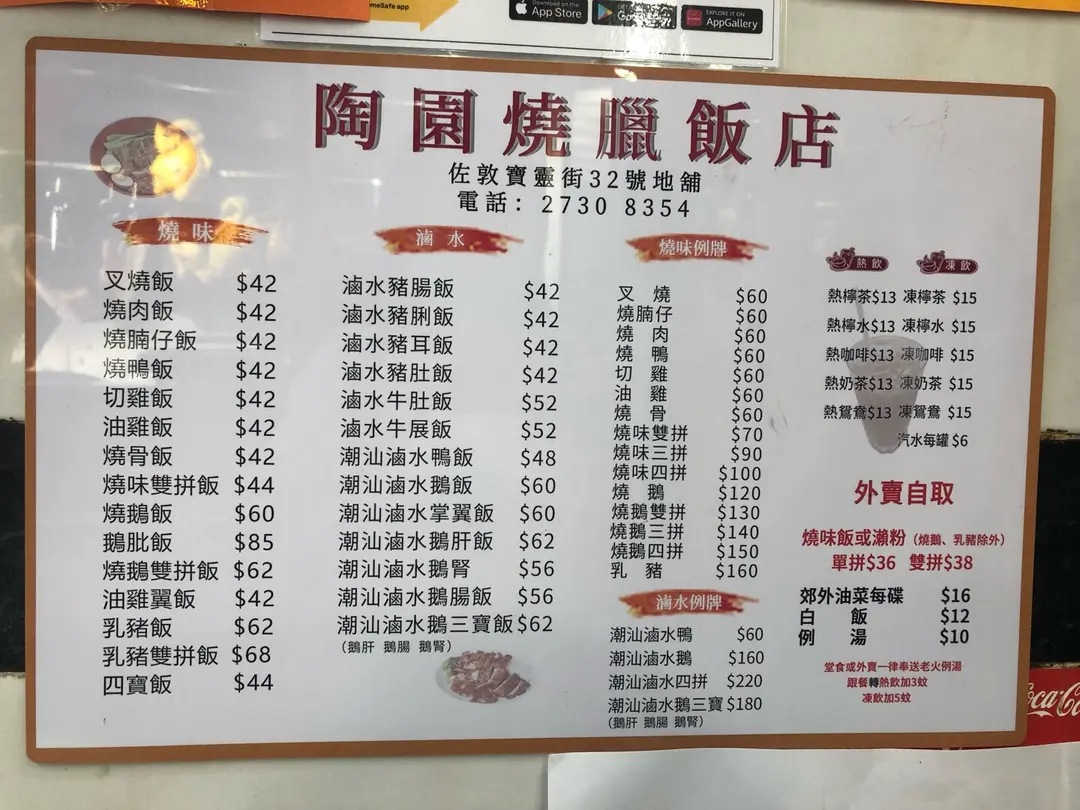 meSafe app
Download on the
App Store
GET
Goog
EXPLORE IT ON
AppGallery
陶園燒臘飯店
佐敦寶靈街32號地舖
電話：2730 8354
燒味
叉燒飯 $42
燒肉飯 $42
燒腩仔飯 $42
燒鴨飯 $42
切雞飯 $42
油雞飯 $42
燒骨飯 $42
燒味雙拼飯 $44
燒鵝飯 $60
鵝肶飯 $85
燒鵝雙拼飯 $62
油雞翼飯 $42
乳豬飯 $62
乳豬雙拼飯 $68
四寶飯 $44
滷水
滷水豬腸飯 $42
滷水豬脷飯 $42
滷水豬耳飯 $42
滷水豬肚飯 $42
滷水牛肚飯 $52
滷水牛展飯 $52
潮汕滷水鴨飯 $48
潮汕滷水鵝飯 $60
潮汕滷水掌翼飯 $60
潮汕滷水鵝肝飯 $62
潮汕滷水鵝腎 $56
潮汕滷水鵝腸飯 $56
潮汕滷水鵝三寶飯 $62
（鵝肝 鵝腸 鵝腎）
燒味例牌
叉燒 $60
燒腩仔 $60
燒肉 $60
燒鴨 $60
切雞 $60
油雞 $60
燒骨 $60
燒味雙拼 $70
燒味三拼 $90
燒味四拼 $100
燒鵝 $120
燒鵝雙拼 $130
燒鵝三拼 $140
燒鵝四拼 $150
乳豬 $160
滷水例牌
潮汕滷水鴨 $60
潮汕滷水鵝 $160
潮汕滷水四拼 $220
潮汕滷水鵝三寶 $180
（鵝肝 鵝腸 鵝腎）
熱飲 凍飲
熱檸茶$13 凍檸茶 $15
熱檸水$13 凍檸水 $15
熱咖啡$13 凍咖啡 $15
熱奶茶$13 凍奶茶 $15
熱鴛鴦$13 凍鴛鴦 $15
汽水每罐 $6
外賣自取
燒味飯或瀨粉（燒鵝、乳豬除外）
單拼$36 雙拼$38
郊外油菜每碟 $16
白飯 $12
例湯 $10
堂食或外賣一律奉送老火例湯
跟餐轉熱飲加3蚊
凍飲加5蚊
Coca-Co